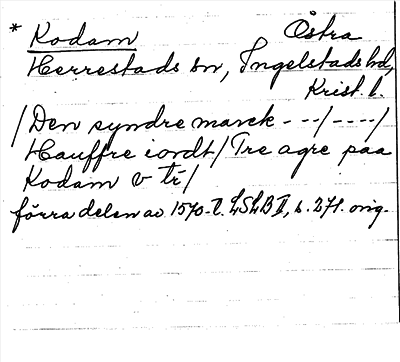 * Kodam Östra
Herrestads sn, Ingelstads hd,
Krist. l.
/Den syndre marck - - -/- - - -/
Hauffre iordt/Tre agre paa
Kodam v tr/
förra delen av 1570-t. LSLB II, s. 271. orig.